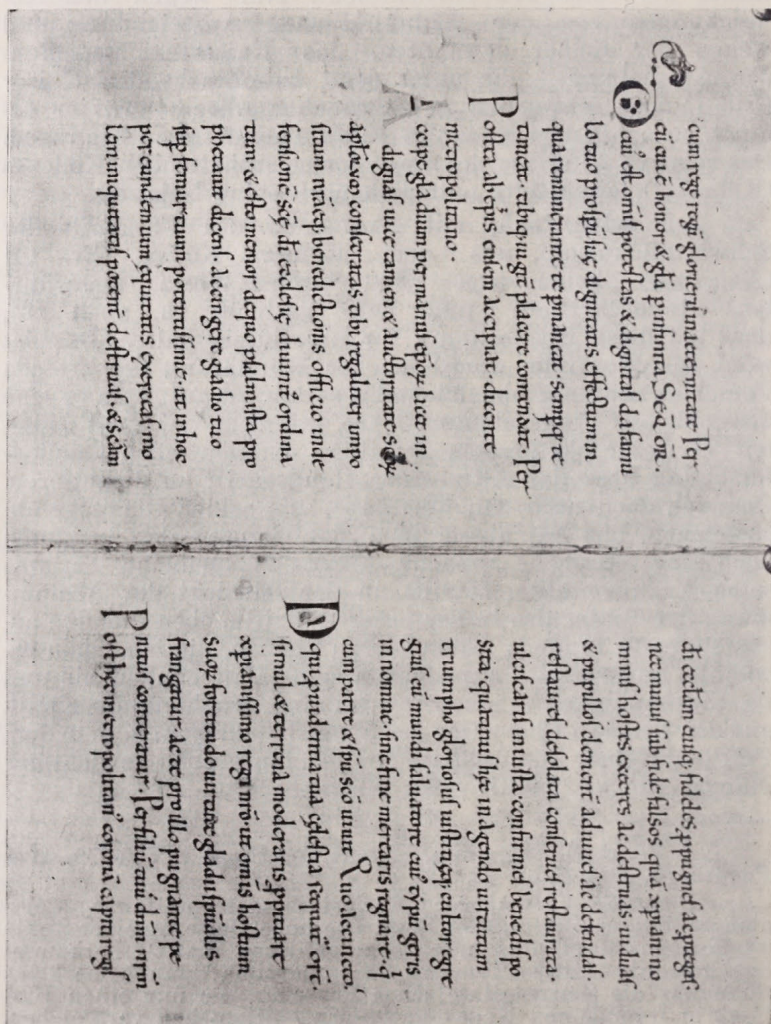 cum rege regū glorieris in aeternitate. Per
eū cui ē honor & gl̄a p infinita Secla. oR̄.
Ds̄ cui' est om̄is potestas & dignitas da famu
lo tuo prosperū suę dignitatis effectum in
qua te remunerante permaneat semperq; te
timeat. tibiq; iugit̄ placere contendat. Per
Postea ab ep̄is ensem accipiat. dicente
metropolitano.
Accipe gladium per manus ep̄oꝝ licet in
dignas. uice tamen & auctoritate sc̄oꝝ
apl̄oꝝ consecratas tibi regaliter impo
situm nr̄aeq; benedictionis officio in de
fensionē sc̄ę dī ecclesię diuinit̄ ordina
tum. & esto memor de quo psalmista pro
phetauit dicens. Accingere gladio tuo
sup femur tuum potentissime. ut in hoc
per eundem uim equitatis exerceas. mo
lem iniquitatis potent̄ destruas. & sc̄am
dī ecclam eiusq; fideles ppugnes ac ptegas.
nec minus sub fide falsos quā xp̄iani no
minis hostes execres ac destruas. uiduas
& pupillos clement̄ adiuues ac defendas.
restaures desolata conserues restaurata.
ulciscaris iniusta confirmes bene dispo
sita. quatinus hęc in agendo uirtutum
triumpho gloriosus iustitięq; cultor egre
gius cū mundi saluatore cui' typū geris
in nomine. sine fine merearis regnare. q̇
cum patre & sp̄u sc̄o uiuit. Quo accincto
sequat̄ orō.
Ds̄ qui puidentia tua cęlestia
simul & terrena moderaris ppitiare
xp̄ianissimo regi nr̄o. ut om̄is hostium
suoꝝ fortitudo uirtute gladii sp̄ualis
frangatur. ac te pro illo pugnante pe
nitus conteratur. Per filiū tuū dn̄m nr̄m
Post hęc metropolitan' coronā capiti regis